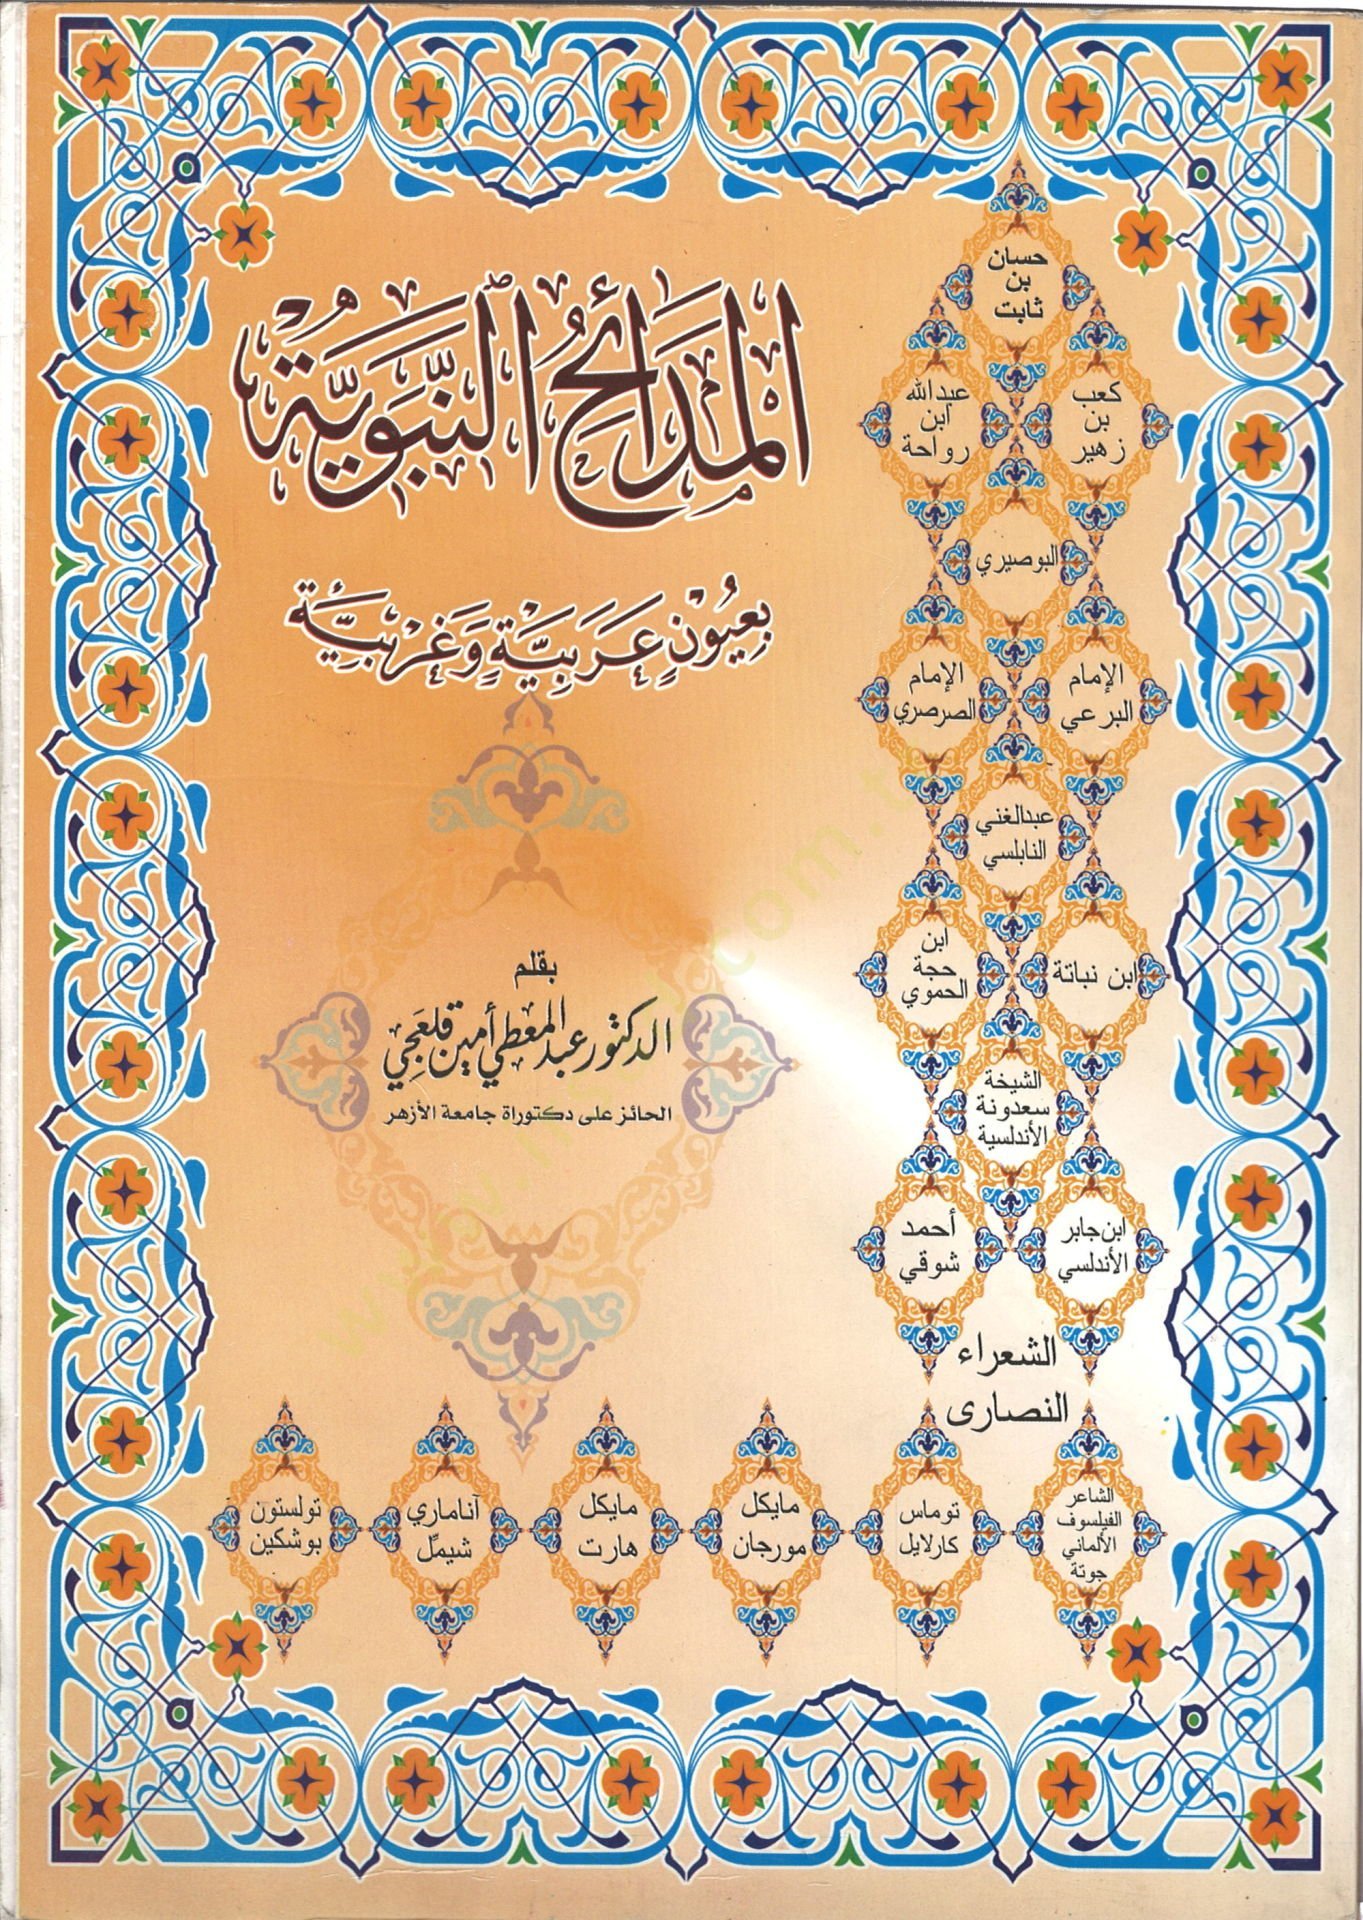 المَدَائِحُ النَّبَوِيَّة
بِعُيُونٍ عَرَبِيَّةٍ وَغَرْبِيَّة
بقلم
الدكتور عبد المعطي أمين قلعجي
الحائز على دكتوراة جامعة الأزهر
حسان
بن
ثابت
كعب
بن
زهير
عبدالله
ابن
رواحة
البوصيري
الإمام
البرعي
الإمام
الصرصري
عبدالغني
النابلسي
ابن نباتة
ابن
حجة
الحموي
الشيخة
سعدونة
الأندلسية
ابن جابر
الأندلسي
أحمد
شوقي
الشعراء
النصارى
الشاعر
الفيلسوف
الألماني
جوتة
توماس
كارلايل
مايكل
مورجان
مايكل
هارت
آناماري
شيملّ
تولستون
بوشكين